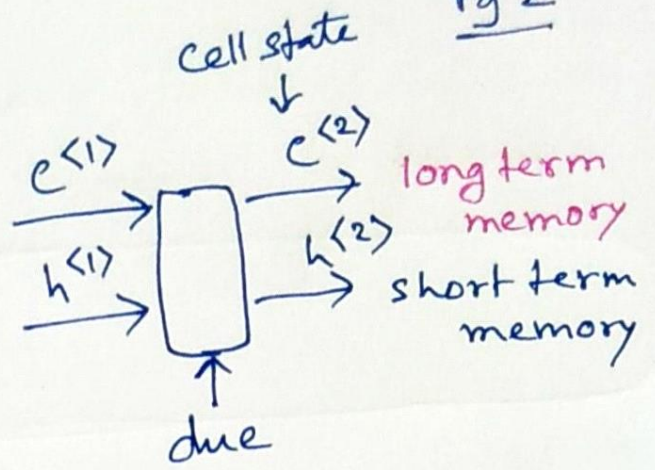 cell state
c<1>
c<2>
long term
memory
h<1>
h<2>
short term
memory
due